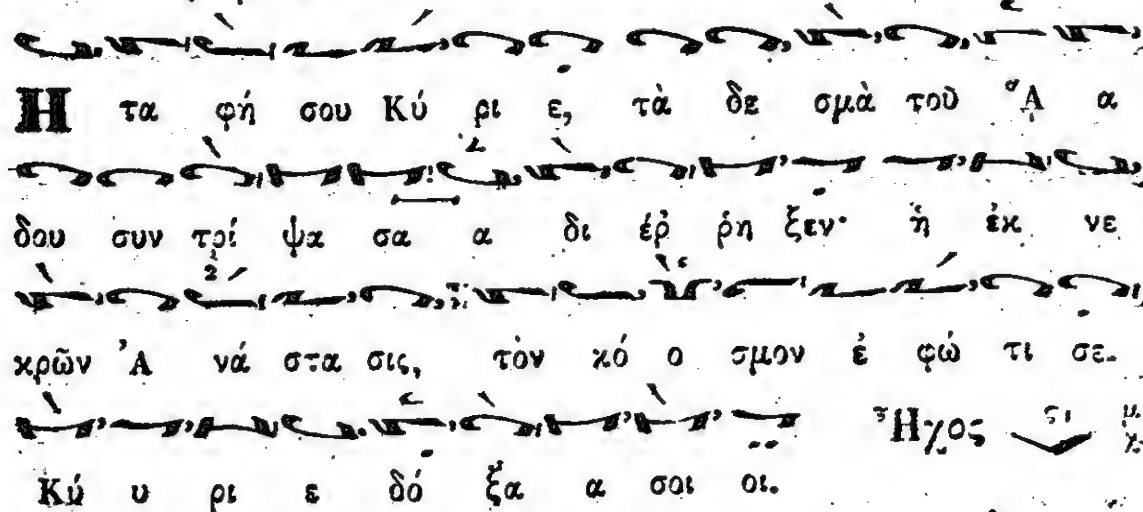 Η τα φή σου Κύ ρι ε, τὰ δε σμὰ τοῦ ᾅ α
δου συν τρί ψα σα α δι έῤ ῥη ξεν· ἡ ἐκ νε
κρῶν Ἀ νά στα σις, τὸν κό ο σμον ἐ φώ τι σε.
Κύ υ ρι ε δό ξα α σοι οι. Ἦχος